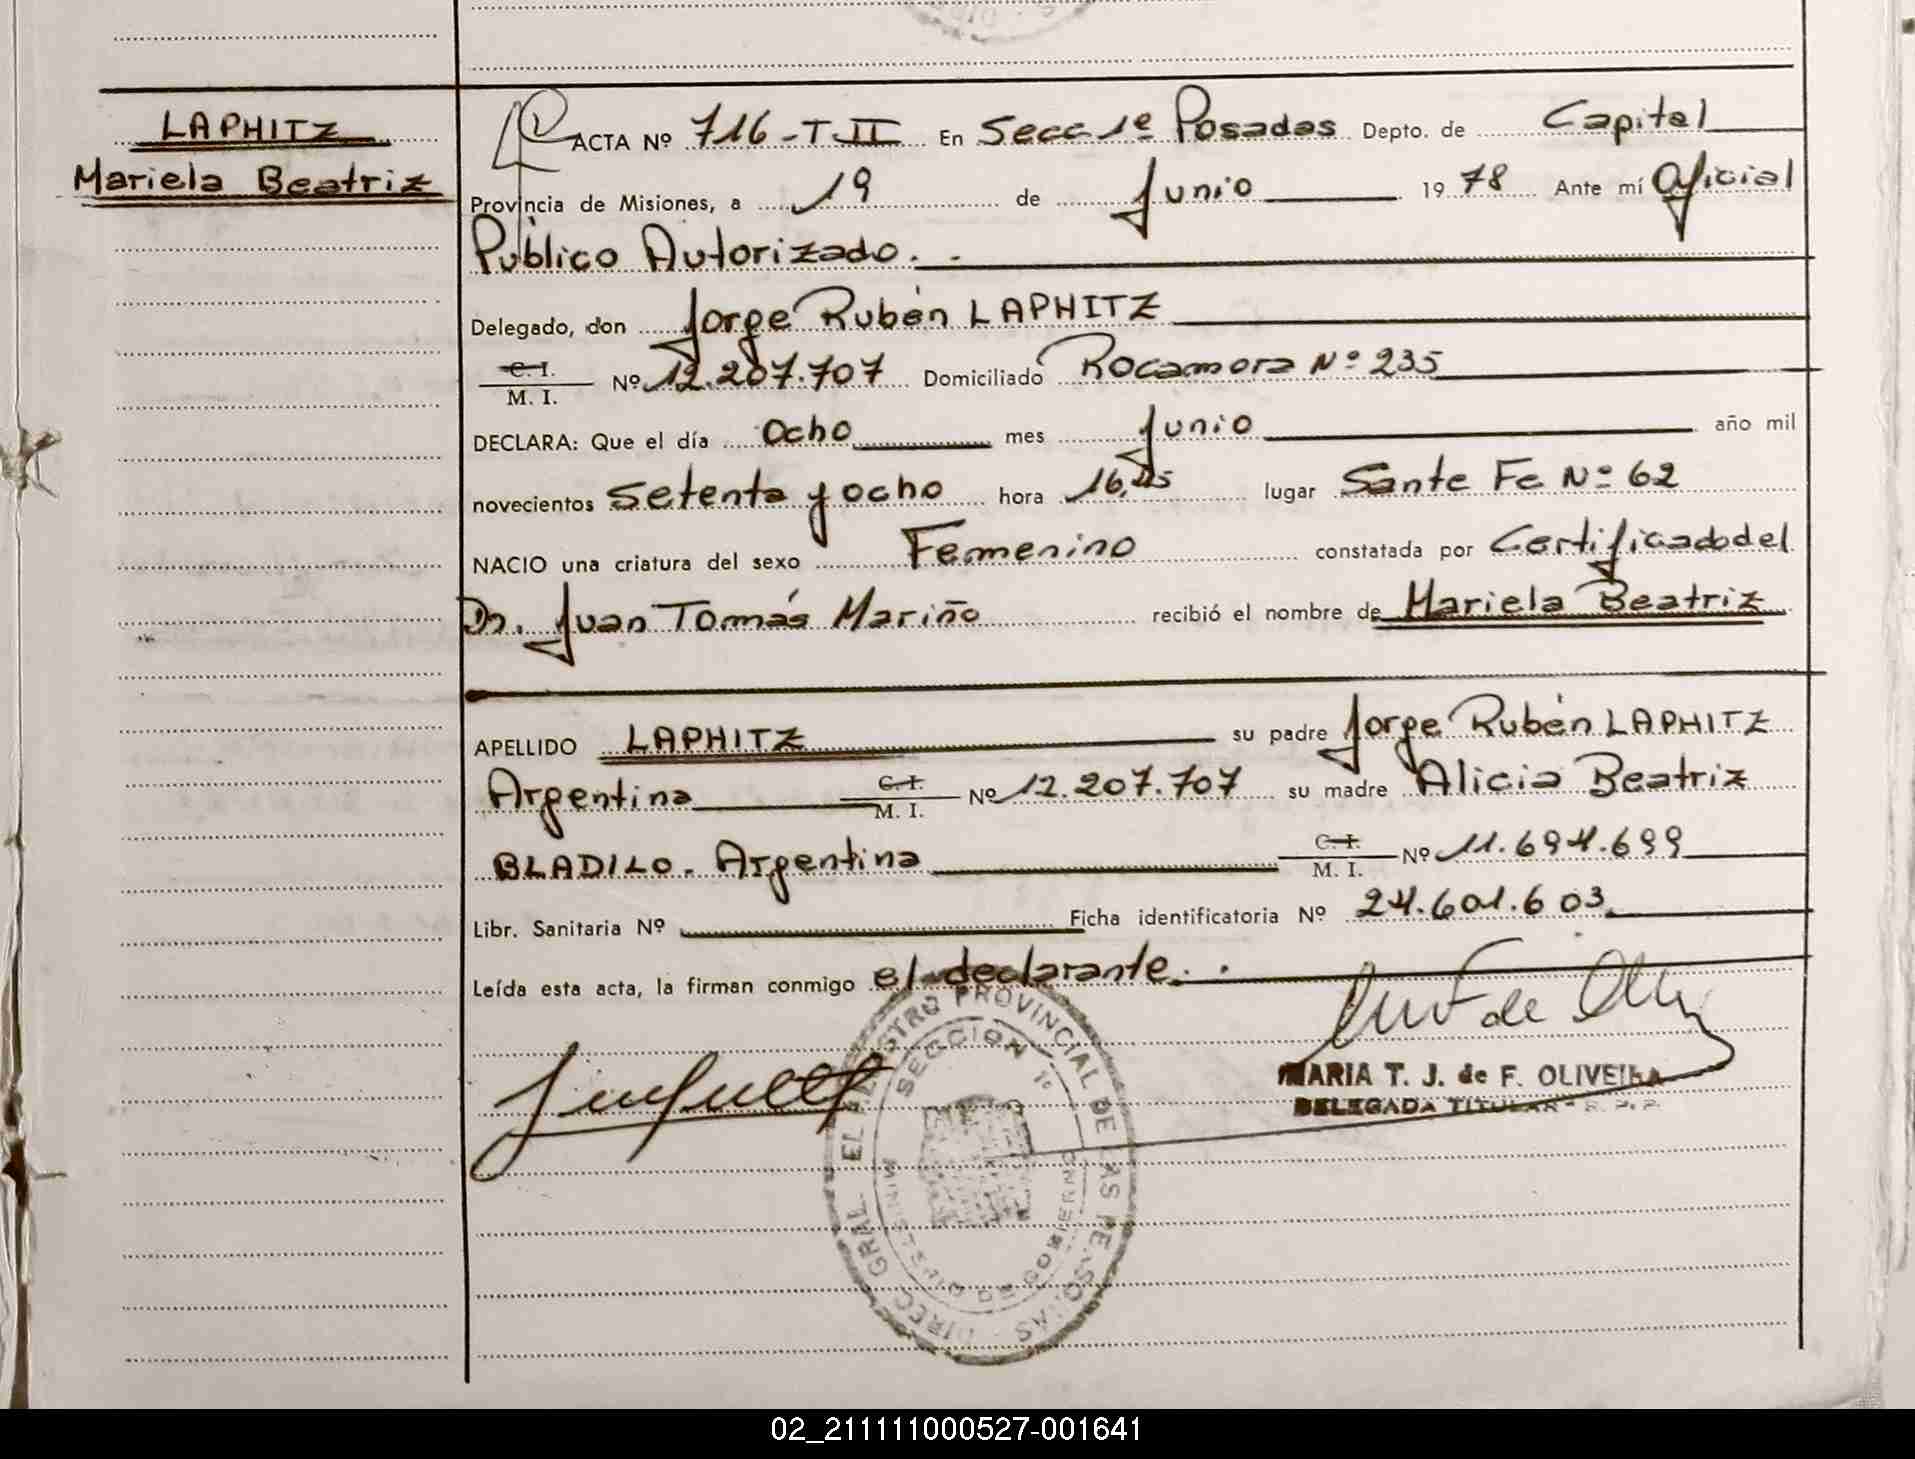 LAPHITZ
Mariela Beatriz
ACTA Nº 716-T II En Secc 1ª Posadas Depto. de Capital
Provincia de Misiones, a 19 de Junio 1978 Ante mí Oficial
Público Autorizado.-
Delegado, don Jorge Rubén LAPHITZ
C. I. / M. I. Nº 12.207.707 Domiciliado Rocamora Nº 235
DECLARA: Que el día Ocho mes Junio año mil
novecientos Setenta y ocho hora 16,45 lugar Santa Fe Nº 62
NACIO una criatura del sexo Femenino constatada por Certificado del
Dr. Juan Tomás Mariño recibió el nombre de Mariela Beatriz
APELLIDO LAPHITZ su padre Jorge Rubén LAPHITZ
Argentina C. I. / M. I. Nº 12.207.707 su madre Alicia Beatriz
BLADILO. Argentina C. I. / M. I. Nº 11.694.699
Libr. Sanitaria Nº Ficha identificatoria Nº 24.601.603
Leída esta acta, la firman conmigo el declarante.-
MARIA T. J. de F. OLIVEIRA
DELEGADA TITULAR R. P. P.
DIREC. GRAL. EL REGISTRO PROVINCIAL DE LAS PERSONAS
SECCION 1ª
MINISTERIO DE GOBIERNO
02_211111000527-001641